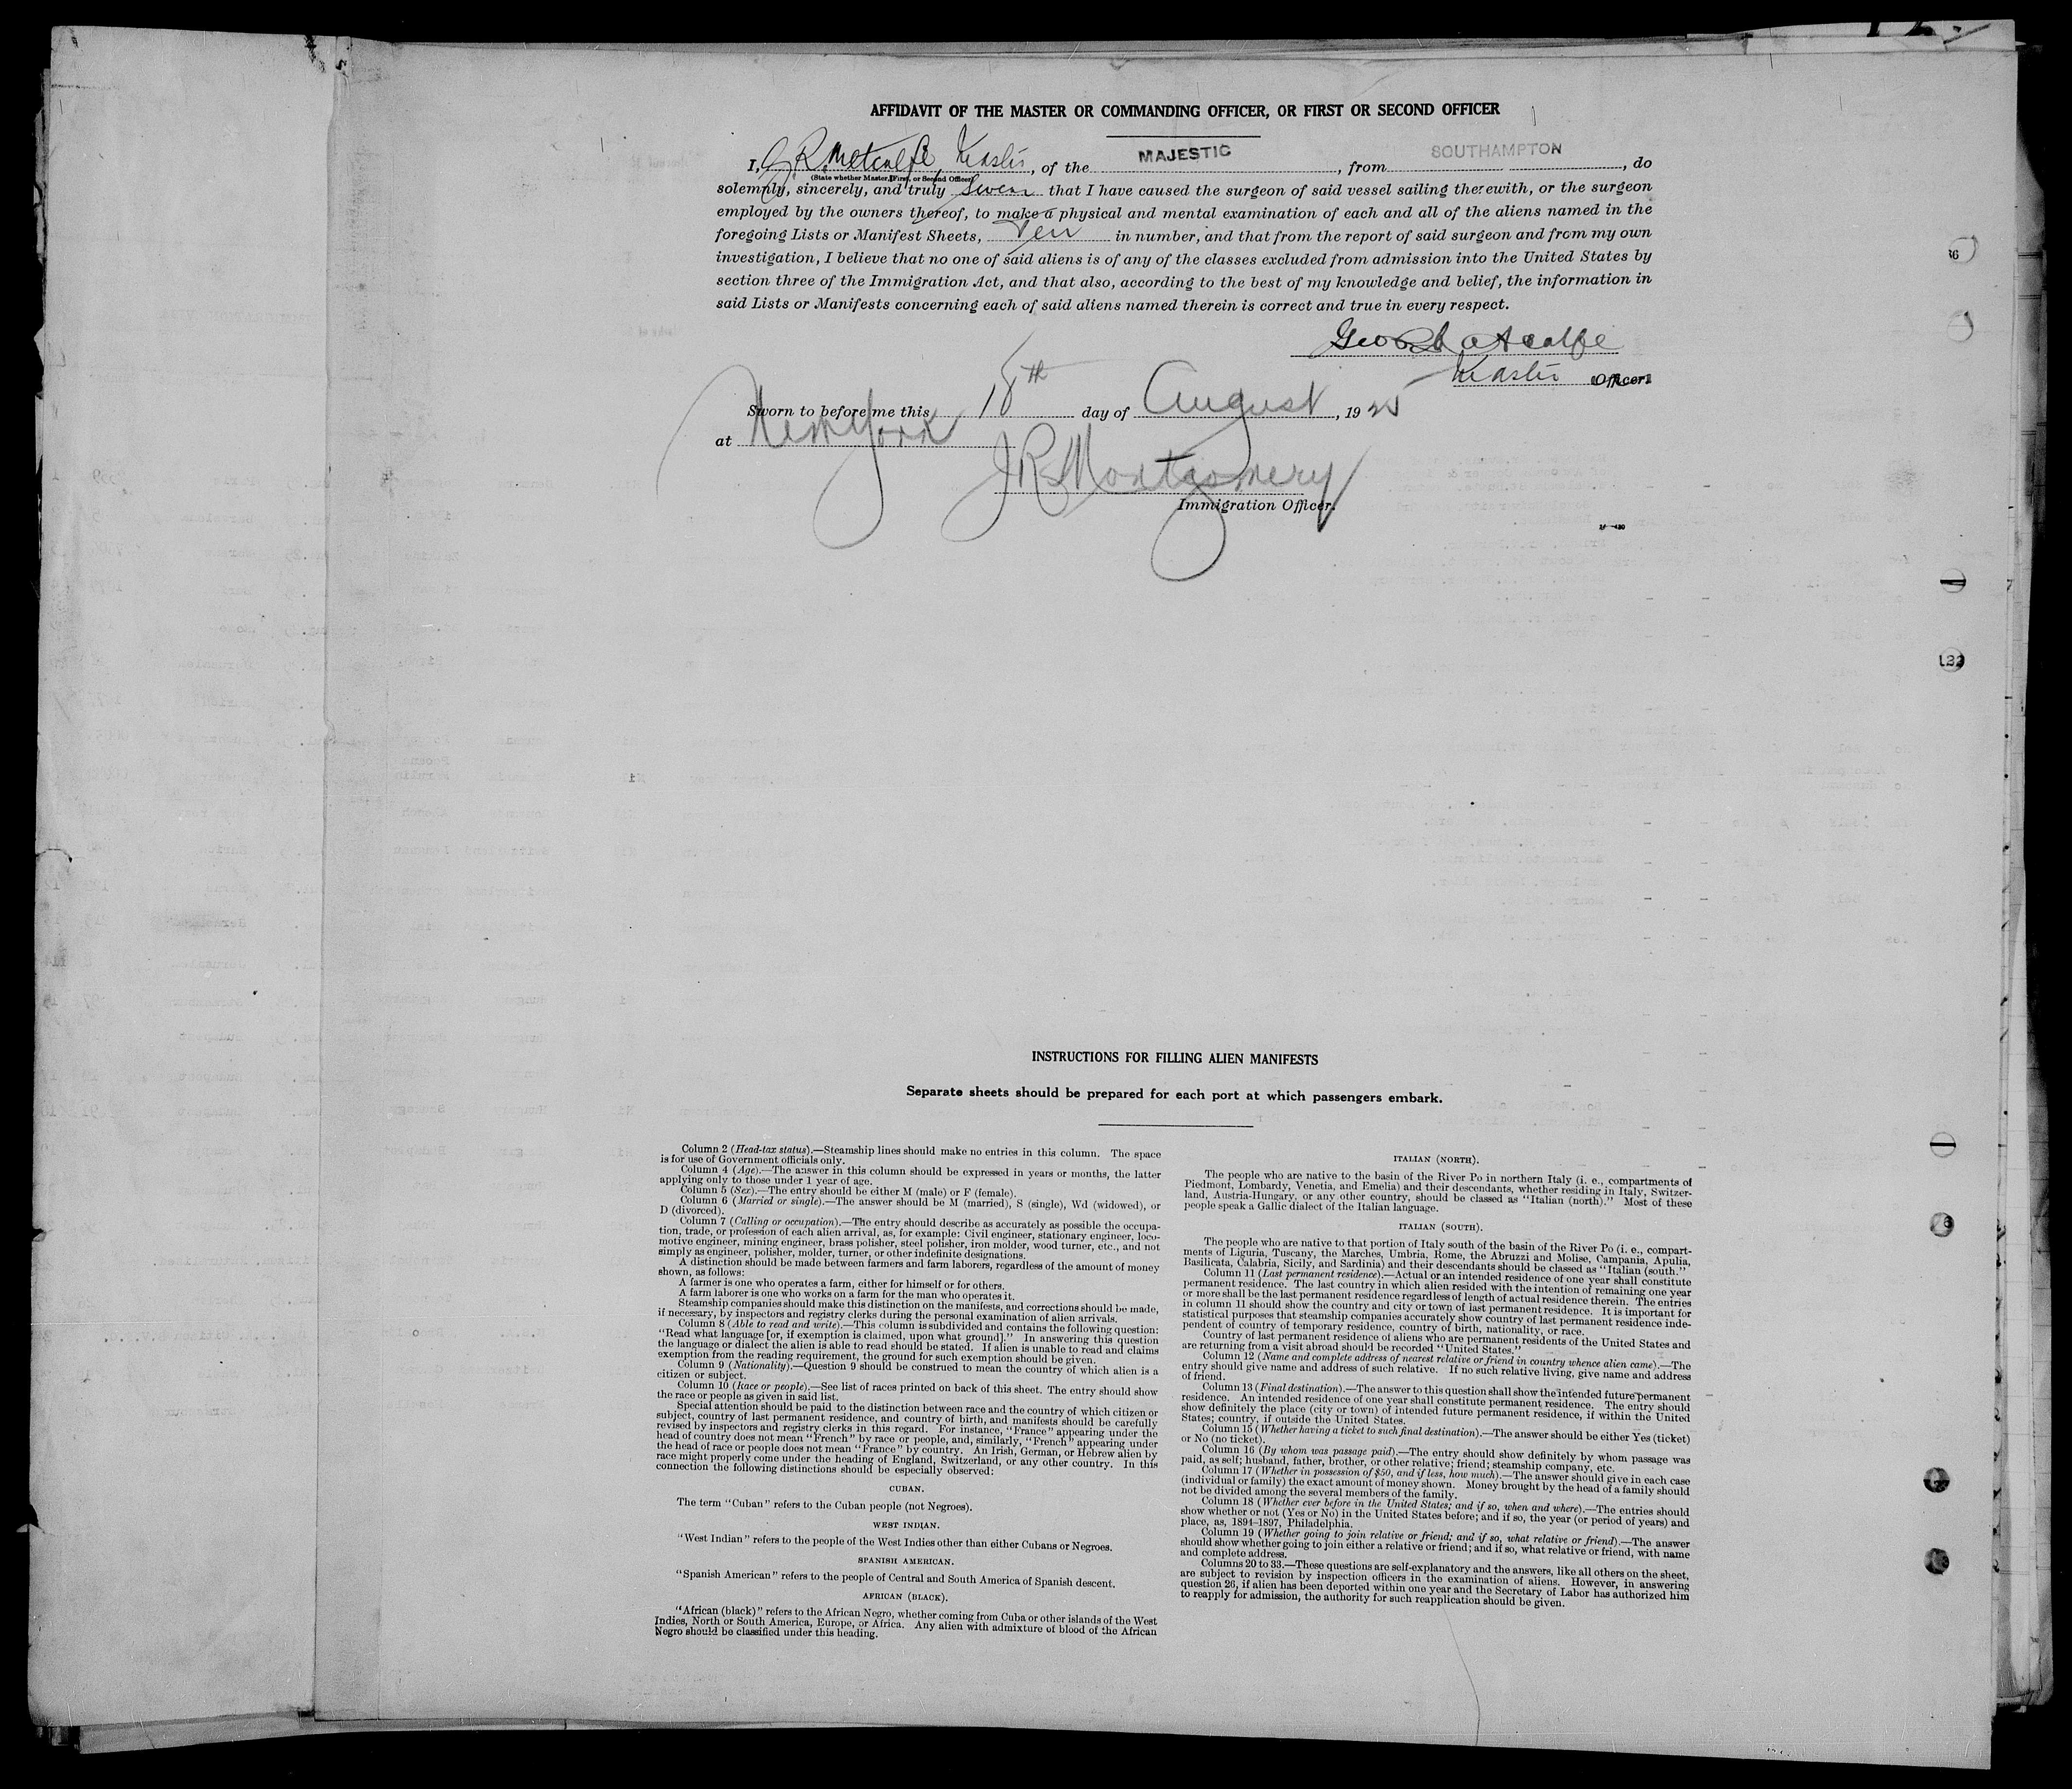 AFFIDAVIT OF THE MASTER OR COMMANDING OFFICER, OR FIRST OR SECOND OFFICER
I, G. R. Metcalfe, Master, of the MAJESTIC, from SOUTHAMPTON, do
(State whether Master, First, or Second Officer)
solemnly, sincerely, and truly swear that I have caused the surgeon of said vessel sailing therewith, or the surgeon
employed by the owners thereof, to make a physical and mental examination of each and all of the aliens named in the
foregoing Lists or Manifest Sheets, Ten in number, and that from the report of said surgeon and from my own
investigation, I believe that no one of said aliens is of any of the classes excluded from admission into the United States by
section three of the Immigration Act, and that also, according to the best of my knowledge and belief, the information in
said Lists or Manifests concerning each of said aliens named therein is correct and true in every respect.
Geo R Metcalfe
Master Officer.
Sworn to before me this 18th day of August, 1925
at New York
J R Montgomery
Immigration Officer.
INSTRUCTIONS FOR FILLING ALIEN MANIFESTS
Separate sheets should be prepared for each port at which passengers embark.
Column 2 (Head-tax status).—Steamship lines should make no entries in this column. The space
is for use of Government officials only.
Column 4 (Age).—The answer in this column should be expressed in years or months, the latter
applying only to those under 1 year of age.
Column 5 (Sex).—The entry should be either M (male) or F (female).
Column 6 (Married or single).—The answer should be M (married), S (single), Wd (widowed), or
D (divorced).
Column 7 (Calling or occupation).—The entry should describe as accurately as possible the occupa-
tion, trade, or profession of each alien arrival, as, for example: Civil engineer, stationary engineer, loco-
motive engineer, mining engineer, brass polisher, steel polisher, iron molder, wood turner, etc., and not
simply as engineer, polisher, molder, turner, or other indefinite designations.
A distinction should be made between farmers and farm laborers, regardless of the amount of money
shown, as follows:
A farmer is one who operates a farm, either for himself or for others.
A farm laborer is one who works on a farm for the man who operates it.
Steamship companies should make this distinction on the manifests, and corrections should be made,
if necessary, by inspectors and registry clerks during the personal examination of alien arrivals.
Column 8 (Able to read and write).—This column is subdivided and contains the following question:
"Read what language [or, if exemption is claimed, upon what ground]." In answering this question
the language or dialect the alien is able to read should be stated. If alien is unable to read and claims
exemption from the reading requirement, the ground for such exemption should be given.
Column 9 (Nationality).—Question 9 should be construed to mean the country of which alien is a
citizen or subject.
Column 10 (Race or people).—See list of races printed on back of this sheet. The entry should show
the race or people as given in said list.
Special attention should be paid to the distinction between race and the country of which citizen or
subject, country of last permanent residence, and country of birth, and manifests should be carefully
revised by inspectors and registry clerks in this regard. For instance, "France" appearing under the
head of country does not mean "French" by race or people, and, similarly, "French" appearing under
the head of race or people does not mean "France" by country. An Irish, German, or Hebrew alien by
race might properly come under the heading of England, Switzerland, or any other country. In this
connection the following distinctions should be especially observed:
CUBAN.
The term "Cuban" refers to the Cuban people (not Negroes).
WEST INDIAN.
"West Indian" refers to the people of the West Indies other than either Cubans or Negroes.
SPANISH AMERICAN.
"Spanish American" refers to the people of Central and South America of Spanish descent.
AFRICAN (BLACK).
"African (black)" refers to the African Negro, whether coming from Cuba or other islands of the West
Indies, North or South America, Europe, or Africa. Any alien with admixture of blood of the African
Negro should be classified under this heading.
ITALIAN (NORTH).
The people who are native to the basin of the River Po in northern Italy (i. e., compartments of
Piedmont, Lombardy, Venetia, and Emelia) and their descendants, whether residing in Italy, Switzer-
land, Austria-Hungary, or any other country, should be classed as "Italian (north)." Most of these
people speak a Gallic dialect of the Italian language.
ITALIAN (SOUTH).
The people who are native to that portion of Italy south of the basin of the River Po (i. e., compart-
ments of Liguria, Tuscany, the Marches, Umbria, Rome, the Abruzzi and Molise, Campania, Apulia,
Basilicata, Calabria, Sicily, and Sardinia) and their descendants should be classed as "Italian (south."
Column 11 (Last permanent residence).—Actual or an intended residence of one year shall constitute
permanent residence. The last country in which alien resided with the intention of remaining one year
or more shall be the last permanent residence regardless of length of actual residence therein. The entries
in column 11 should show the country and city or town of last permanent residence. It is important for
statistical purposes that steamship companies accurately show country of last permanent residence inde-
pendent of country of temporary residence, country of birth, nationality, or race.
Country of last permanent residence of aliens who are permanent residents of the United States and
are returning from a visit abroad should be recorded "United States."
Column 12 (Name and complete address of nearest relative or friend in country whence alien came).—The
entry should give name and address of such relative. If no such relative living, give name and address
of friend.
Column 13 (Final destination).—The answer to this question shall show the intended future permanent
residence. An intended residence of one year shall constitute permanent residence. The entry should
show definitely the place (city or town) of intended future permanent residence, if within the United
States; country, if outside the United States.
Column 15 (Whether having a ticket to such final destination).—The answer should be either Yes (ticket)
or No (no ticket).
Column 16 (By whom was passage paid).—The entry should show definitely by whom passage was
paid, as self; husband, father, brother, or other relative; friend; steamship company, etc.
Column 17 (Whether in possession of $50, and if less, how much).—The answer should give in each case
(individual or family) the exact amount of money shown. Money brought by the head of a family should
not be divided among the several members of the family.
Column 18 (Whether ever before in the United States; and if so, when and where).—The entries should
show whether or not (Yes or No) in the United States before; and if so, the year (or period of years) and
place, as, 1894-1897, Philadelphia.
Column 19 (Whether going to join relative or friend; and if so, what relative or friend).—The answer
should show whether going to join either a relative or friend; and if so, what relative or friend, with name
and complete address.
Columns 20 to 33.—These questions are self-explanatory and the answers, like all others on the sheet,
are subject to revision by inspection officers in the examination of aliens. However, in answering
question 26, if alien has been deported within one year and the Secretary of Labor has authorized him
to reapply for admission, the authority for such reapplication should be given.